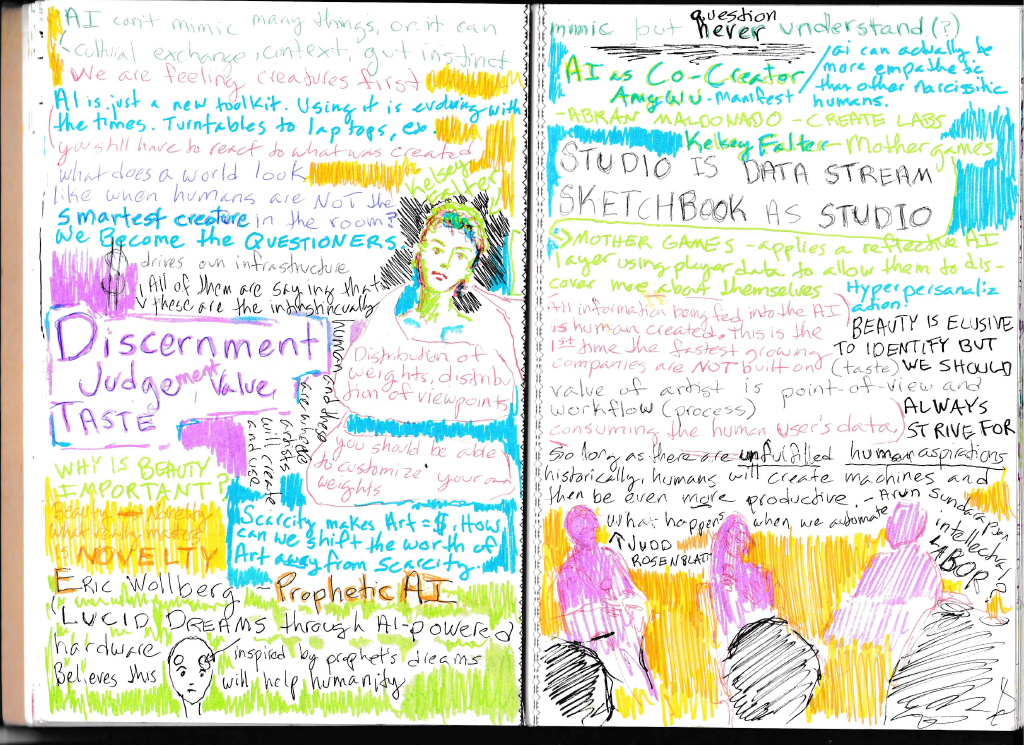 AI can't mimic many things, or it can
cultural exchange, context, gut instinct
We are feeling creatures first
AI is just a new toolkit. Using it is evolving with
the times. Turntables to laptops, ex.
you still have to react to what was created
what does a world look
like when humans are NOT the
smartest creature in the room?
We Become the QUESTIONERS.
Kelsey
Falter
$
drives own infrastructure
All of them are saying that
these are the
human and these
are where
artists
will create
and use
Discernment
Judgement, Value,
TASTE
Distribution of
weights, distribu
tion of viewpoints
you should be able
to customize your own
weights
WHY IS BEAUTY
IMPORTANT?
Beauty — Novelty
what really matters
is
NOVELTY
Scarcity makes Art = $. How
can we shift the worth of
Art away from scarcity.
Eric Wollberg — Prophetic AI
LUCID DREAMS through AI-powered
hardware
Believes this
inspired by prophet's dreams
will help humanity
question
mimic but never understand (?)
AI as Co-Creator
Amy Wu - Manifest
ai can actually be
more empathetic
than other narcissitic
humans.
- ABRAN MALDONADO - CREATE LABS
Kelsey Falter - Mother games
STUDIO IS DATA STREAM
SKETCHBOOK AS STUDIO
MOTHER GAMES - applies a reflective AI
layer using player data to allow them to dis-
cover more about themselves
Hyper personaliz
ation?
All information being fed into the AI
is human created. This is the
1st time the fastest growing
companies are NOT built on
(taste)
BEAUTY IS ELUSIVE
TO IDENTIFY BUT
WE SHOULD
ALWAYS
STRIVE FOR
value of artist is point-of-view and
workflow (process)
consuming the human user's data
So long as there are unfulfilled human aspirations
historically, humans will create machines and
then be even more productive - Arun Sundararajan
What happens when we automate
intellectual
LABOR?
JUDD
ROSENBLATT